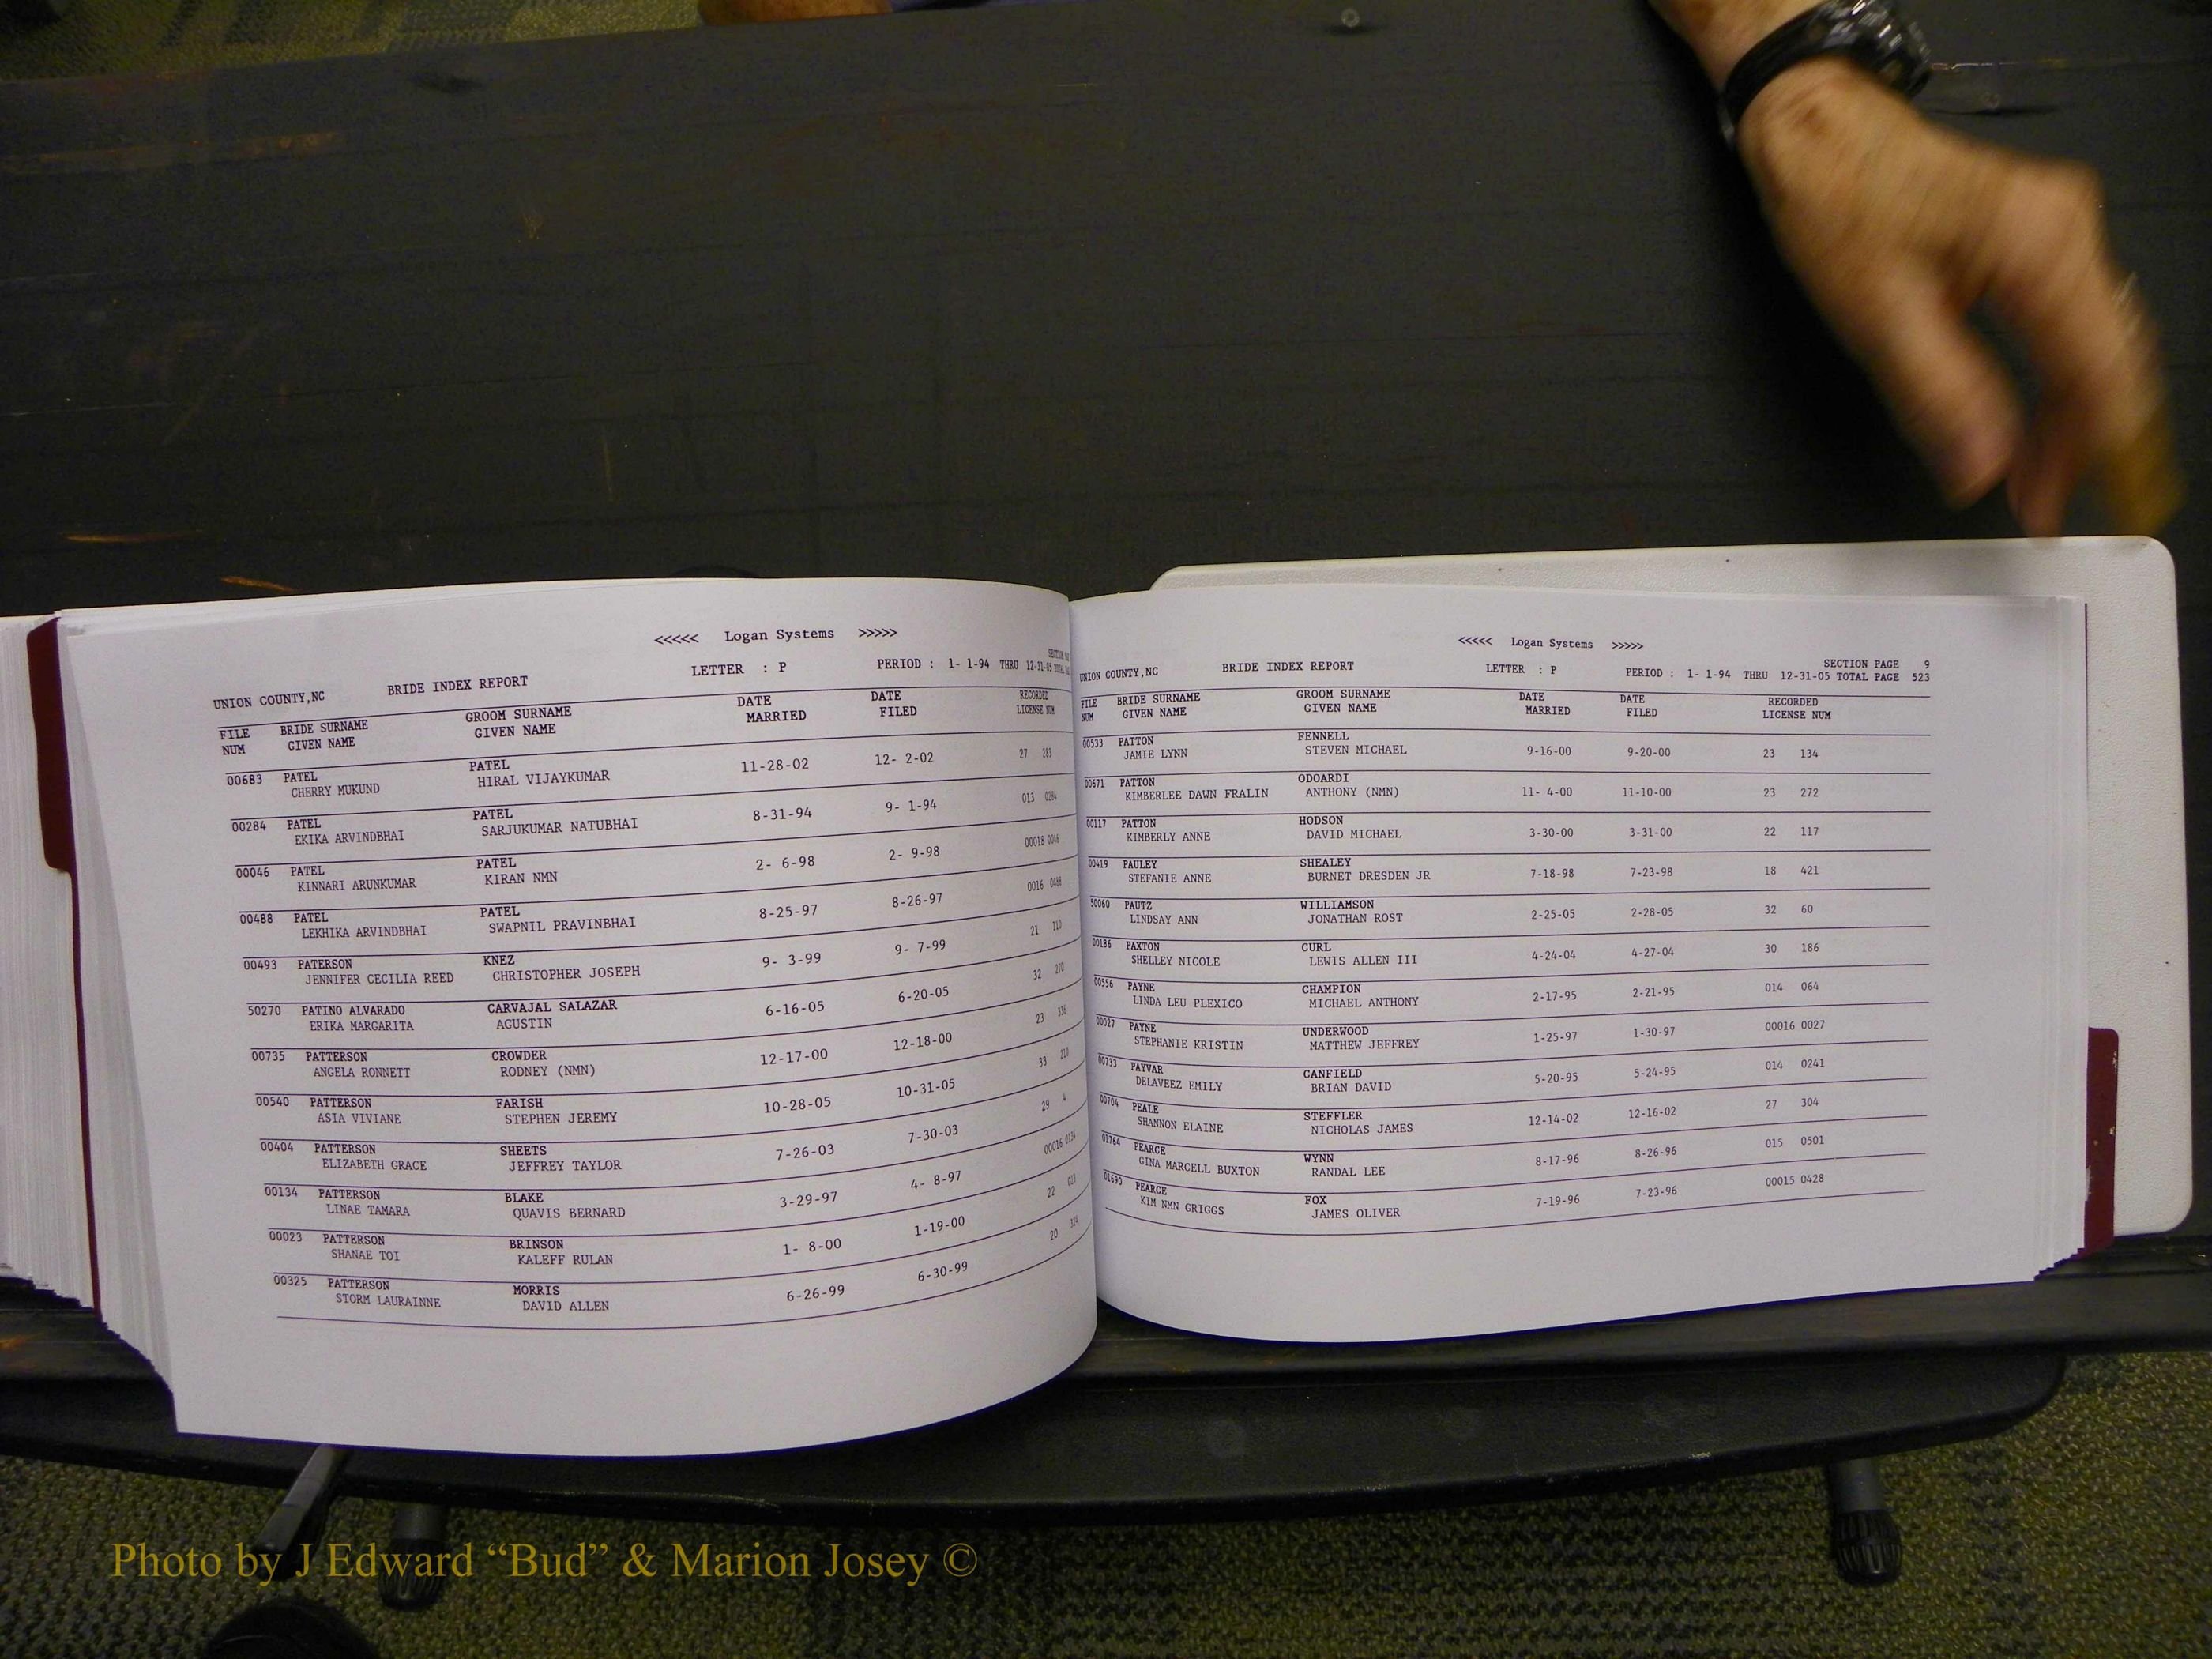 <<<<< Logan Systems >>>>>
UNION COUNTY,NC BRIDE INDEX REPORT LETTER : P PERIOD : 1- 1-94 THRU 12-31-05 TOTAL
FILE BRIDE SURNAME GROOM SURNAME DATE DATE RECORDED
NUM GIVEN NAME GIVEN NAME MARRIED FILED LICENSE NUM
00683 PATEL PATEL 11-28-02 12- 2-02 27 283
CHERRY MUKUND HIRAL VIJAYKUMAR
00284 PATEL PATEL 8-31-94 9- 1-94 013 0284
EKIKA ARVINDBHAI SARJUKUMAR NATUBHAI
00046 PATEL PATEL 2- 6-98 2- 9-98 00018 0046
KINNARI ARUNKUMAR KIRAN NMN
00488 PATEL PATEL 8-25-97 8-26-97 0016 0488
LEKHIKA ARVINDBHAI SWAPNIL PRAVINBHAI
00493 PATERSON KNEZ 9- 3-99 9- 7-99 21 110
JENNIFER CECILIA REED CHRISTOPHER JOSEPH
50270 PATINO ALVARADO CARVAJAL SALAZAR 6-16-05 6-20-05 32 270
ERIKA MARGARITA AGUSTIN
00735 PATTERSON CROWDER 12-17-00 12-18-00 23 336
ANGELA RONNETT RODNEY (NMN)
00540 PATTERSON FARISH 10-28-05 10-31-05 33 210
ASIA VIVIANE STEPHEN JEREMY
00404 PATTERSON SHEETS 7-26-03 7-30-03 29 4
ELIZABETH GRACE JEFFREY TAYLOR
00134 PATTERSON BLAKE 3-29-97 4- 8-97 00016 0134
LINAE TAMARA QUAVIS BERNARD
00023 PATTERSON BRINSON 1- 8-00 1-19-00 22 023
SHANAE TOI KALEFF RULAN
00325 PATTERSON MORRIS 6-26-99 6-30-99 20 324
STORM LAURAINNE DAVID ALLEN
<<<<< Logan Systems >>>>>
SECTION PAGE 9
UNION COUNTY,NC BRIDE INDEX REPORT LETTER : P PERIOD : 1- 1-94 THRU 12-31-05 TOTAL PAGE 523
FILE BRIDE SURNAME GROOM SURNAME DATE DATE RECORDED
NUM GIVEN NAME GIVEN NAME MARRIED FILED LICENSE NUM
00533 PATTON FENNELL 9-16-00 9-20-00 23 134
JAMIE LYNN STEVEN MICHAEL
00671 PATTON ODOARDI 11- 4-00 11-10-00 23 272
KIMBERLEE DAWN FRALIN ANTHONY (NMN)
00117 PATTON HODSON 3-30-00 3-31-00 22 117
KIMBERLY ANNE DAVID MICHAEL
00419 PAULEY SHEALEY 7-18-98 7-23-98 18 421
STEFANIE ANNE BURNET DRESDEN JR
50060 PAUTZ WILLIAMSON 2-25-05 2-28-05 32 60
LINDSAY ANN JONATHAN ROST
00186 PAXTON CURL 4-24-04 4-27-04 30 186
SHELLEY NICOLE LEWIS ALLEN III
00556 PAYNE CHAMPION 2-17-95 2-21-95 014 064
LINDA LEU PLEXICO MICHAEL ANTHONY
00027 PAYNE UNDERWOOD 1-25-97 1-30-97 00016 0027
STEPHANIE KRISTIN MATTHEW JEFFREY
00733 PAYVAR CANFIELD 5-20-95 5-24-95 014 0241
DELAVEEZ EMILY BRIAN DAVID
00704 PEALE STEFFLER 12-14-02 12-16-02 27 304
SHANNON ELAINE NICHOLAS JAMES
01764 PEARCE WYNN 8-17-96 8-26-96 015 0501
GINA MARCELL BUXTON RANDAL LEE
01690 PEARCE FOX 7-19-96 7-23-96 00015 0428
KIM NMN GRIGGS JAMES OLIVER
Photo by J Edward “Bud” & Marion Josey ©